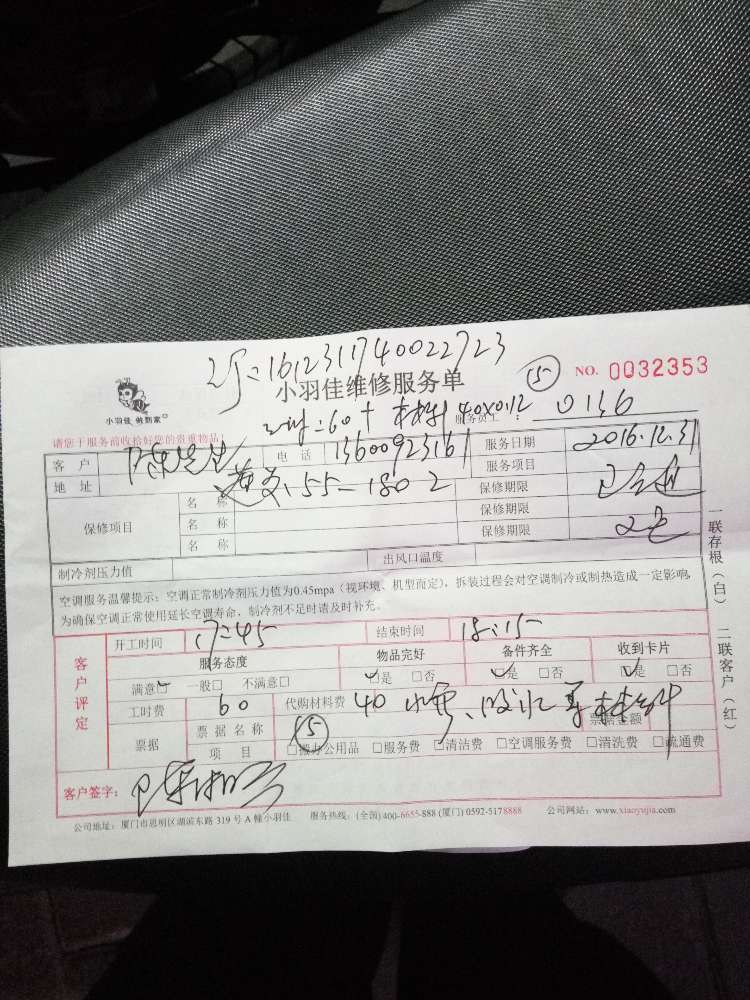 1612311740022723
小羽佳 做到家
小羽佳维修服务单
15
NO. 0032353
60+ 材料 40×0.12
服务员工: 0136
请您于服务前收拾好您的贵重物品
客 户 陈先生 电 话 13600923161 服务日期 2016.12.31
地 址 55-1802 服务项目
保修项目 名 称 保修期限
名 称 保修期限
名 称 保修期限
制冷剂压力值 出风口温度
空调服务温馨提示:空调正常制冷剂压力值为0.45mpa(视环境、机型而定),拆装过程会对空调制冷或制热造成一定影响,
为确保空调正常使用延长空调寿命,制冷剂不足时请及时补充。
一联存根(白) 二联客户(红)
客户评定
开工时间 17:45 结束时间 18:15
服务态度 物品完好 备件齐全 收到卡片
满意□ 一般□ 不满意□ □是 □否 □是 □否 □是 □否
工时费 60 代购材料费 40
票据 票据名称 15 票据金额
项 目 □办公用品 □服务费 □清洁费 □空调服务费 □清洗费 □疏通费
客户签字: 陈
公司地址:厦门市思明区湖滨东路 319 号 A 幢小羽佳 服务热线:(全国)400-6655-888 (厦门) 0592-5178888 公司网站:www.xiaoyujia.com